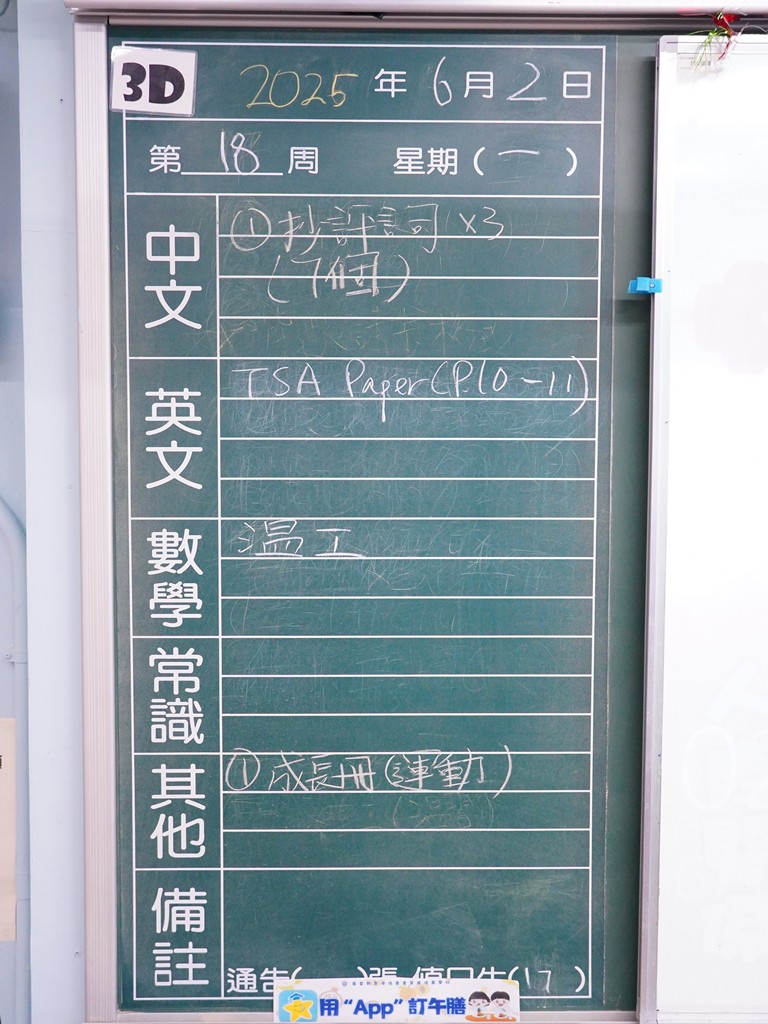 3D
2025 年 6 月 2 日
第 18 周 星期 ( 一 )
中文
① 抄評詞 ×3
(7個)
英文
TSA Paper (P.10-11)
數學
溫工
常識
其他
① 成長冊 (運動)
備註
通告( )張 值日生(17)
用“App”訂午膳